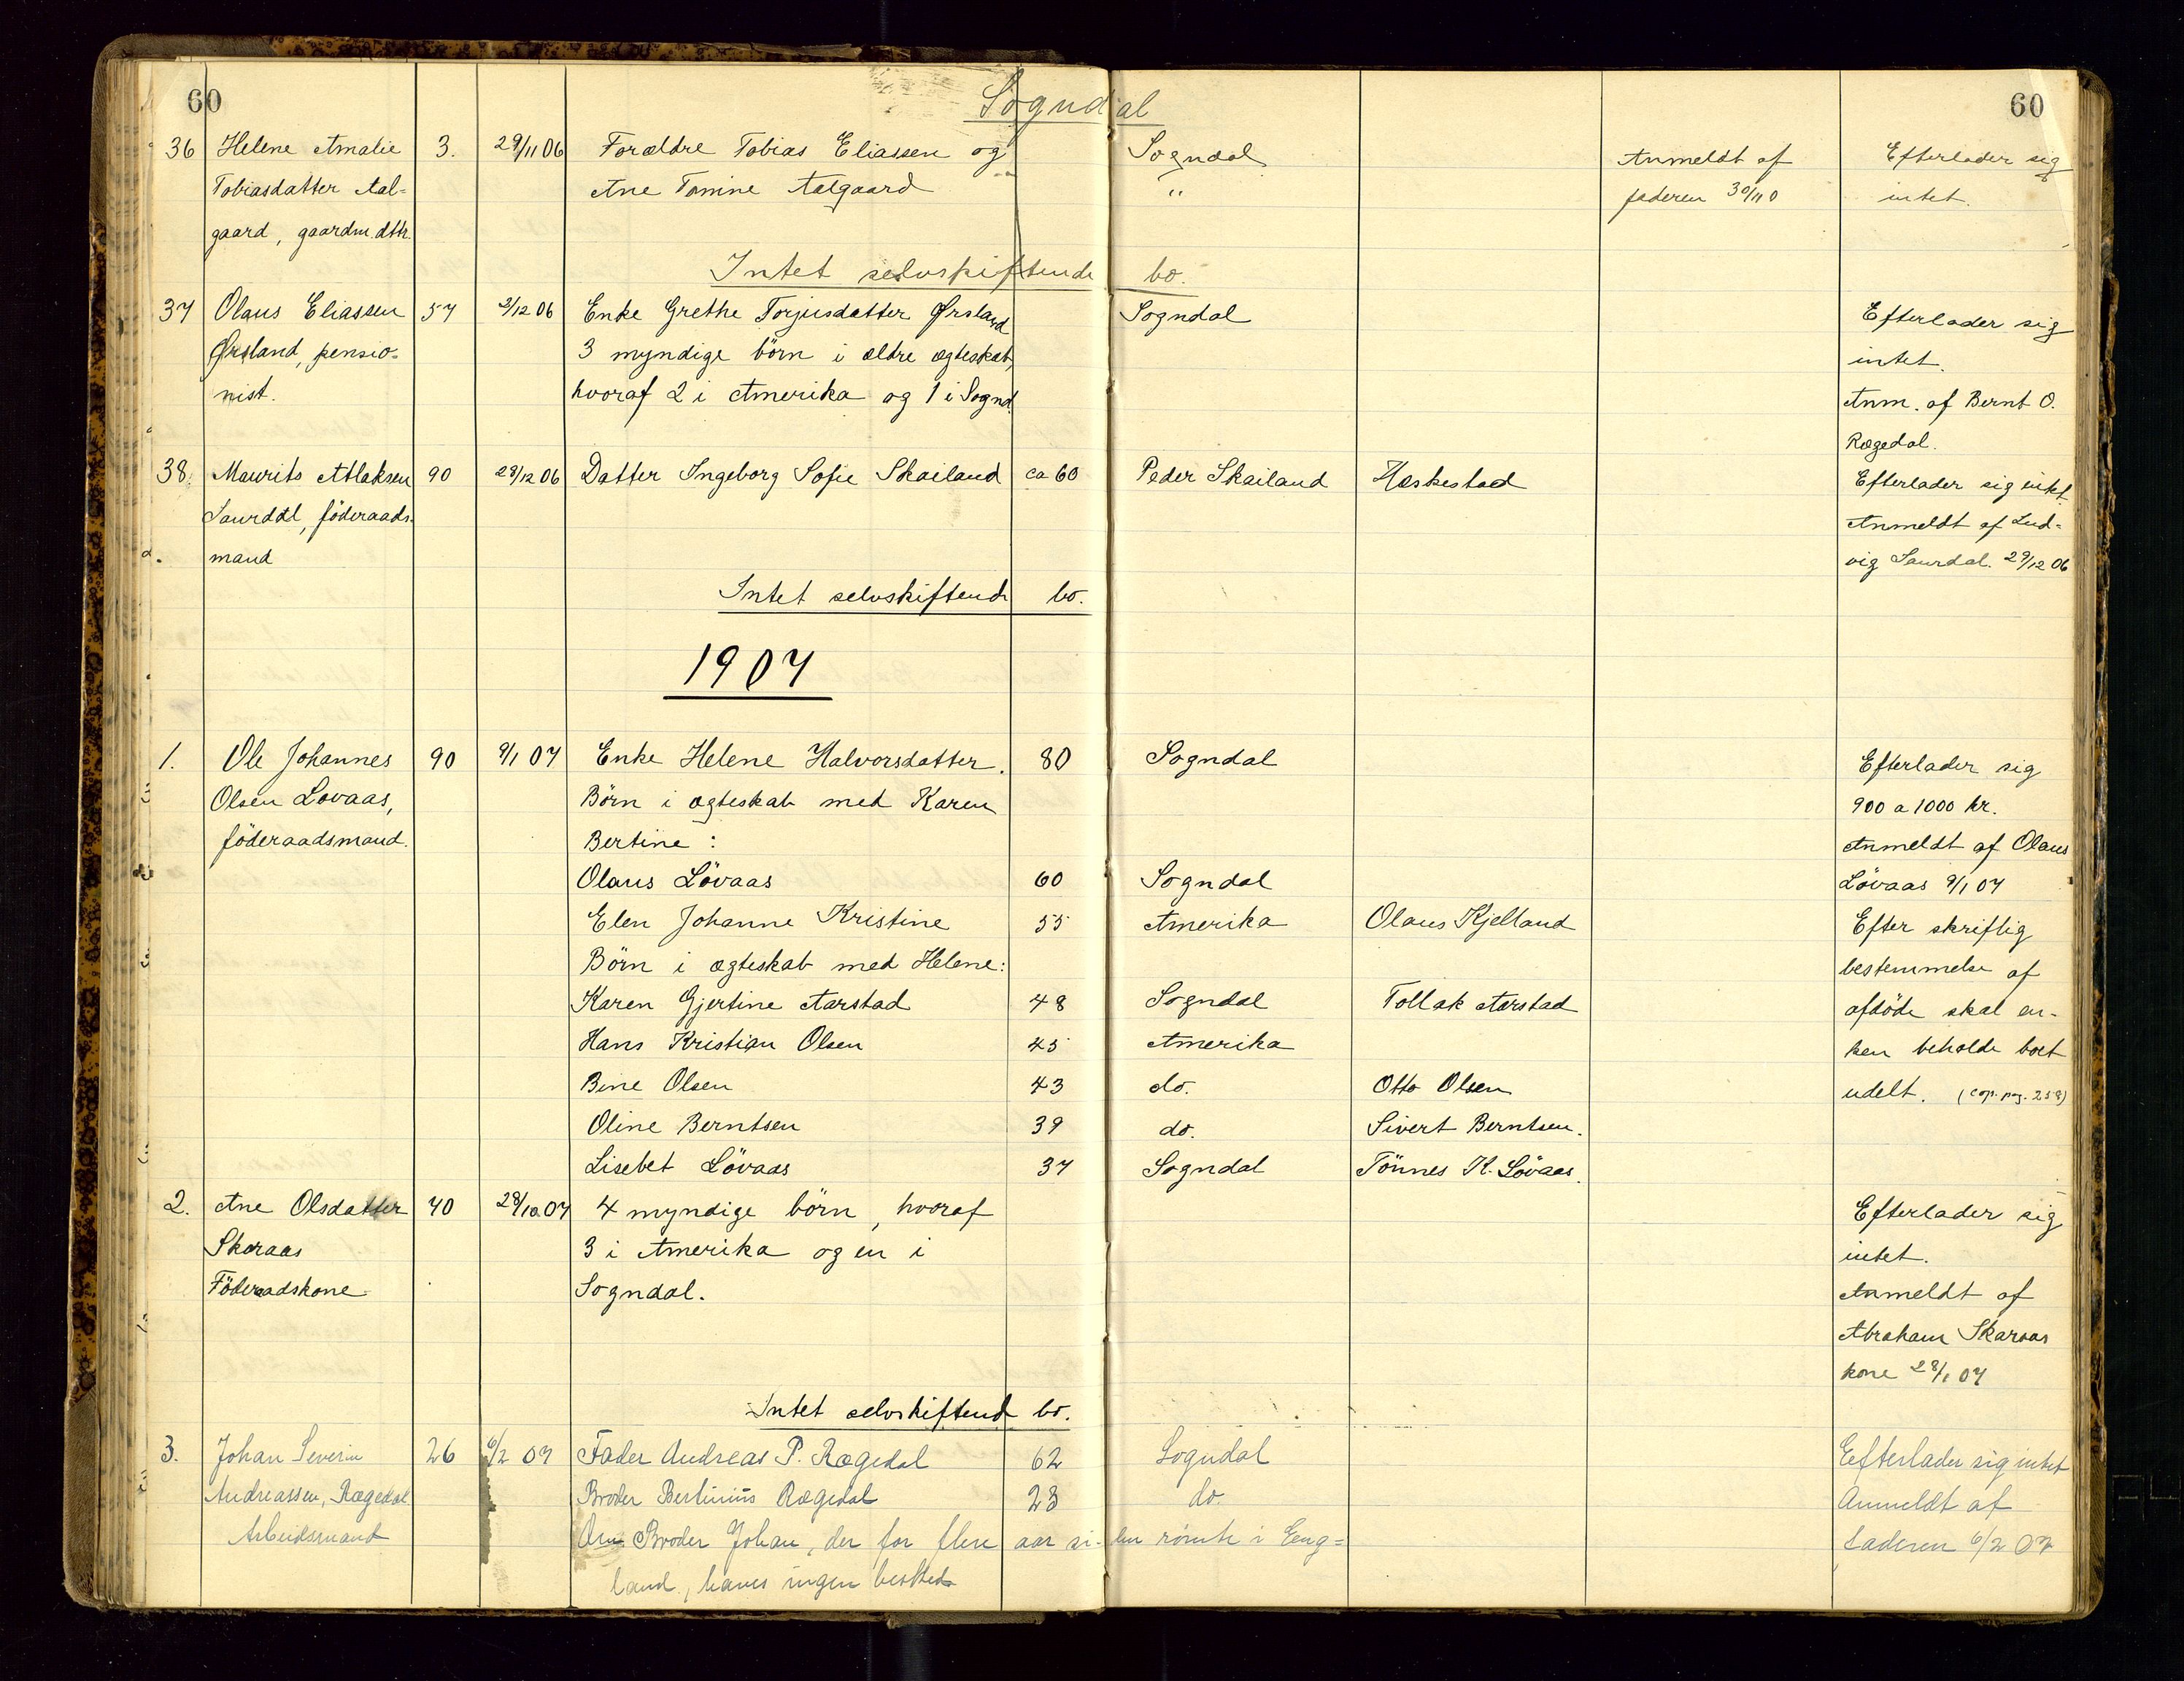 60
Sogndal
60
36 Helene Amalie 3. 29/11 06 Forældre Tobias Eliassen og Sogndal Anmeldt af Efterlader sig
Tobiasdatter Aal- Ane Tomine Aalgaard " faderen 30/11 0 intet.
gaard, gaardm.dttr.
Intet selvskiftende bo.
37 Olaus Eliassen 57 2/12 06 Enke Grethe Torjusdatter Ørsland Sogndal Efterlader sig
Ørsland, pensio- 3 myndige börn i ældre ægteskab, intet.
nist. hvoraf 2 i Amerika og 1 i Sognd. Anm. af Bernt O.
Rægedal.
38. Maurits Atlaksen 90 28/12 06 Datter Ingeborg Sofie Skailand ca 60 Peder Skailand Heskestad Efterlader sig intet
Saurdal, föderaads- Anmeldt af Lud-
mand vig Saurdal. 29/12 06
Intet selvskiftende bo.
1907
1. Ole Johannes 90 9/1 07 Enke Helene Halvorsdatter. 80 Sogndal Efterlader sig
Olsen Lovaas, Börn i ægteskab med Karen 900 a 1000 kr.
föderaadsmand. Bertine : Anmeldt af Olaus
Olaus Lövaas 60 Sogndal Lövaas 9/1 07
Elen Johanne Kristine 55 Amerika Olaus Kjelland Efter skriftlig
Börn i ægteskab med Helene: bestemmelse af
Karen Gjertine Aarstad 48 Sogndal Tollak Aarstad afdöde skal en-
Hans Kristian Olsen 45 Amerika ken beholde boet
Bine Olsen 43 do. Otto Olsen udelt. (cop. pag. 258)
Oline Berntsen 39 do. Sivert Berntsen.
Lisebet Lövaas 37 Sogndal Tönnes K. Lövaas.
2. Ane Olsdatter 70 28/10 07 4 myndige börn, hvoraf Efterlader sig
Skaraas 3 i Amerika og en i intet.
Föderaadskone Sogndal. Anmeldt af
Abraham Skaraas
kone 28/1 07
Intet selvskiftend bo.
3. Johan Severin 26 6/2 07 Fader Andreas P. Rægedal 62 Sogndal Eefterlader sig intet
Andreassen, Rægedal Broder Bertinius Rægedal 28 do. Anmeldt af
Arbeidsmand Om Broder Johan, der for flere aar si- den römte i Eng= faderen 6/2 07
land, haves ingen besked